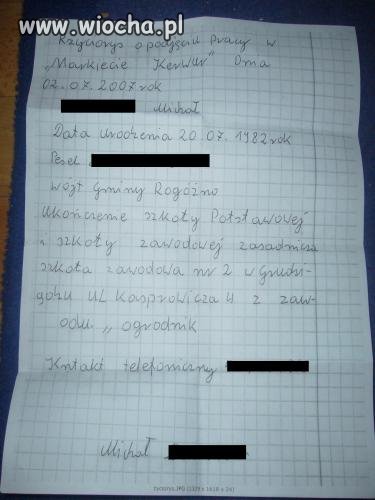 www.wiocha.pl
Krzyciorys o podjęciu Pracy w
„Markiecie Kerwur" Dnia
02.07.2007 rok
Michał
Data urodzenia 20.07.1982 rok
Pesel
wójt Gminy Rogóźno
Ukończenie szkoły Potstawowej
i szkoły zawodowej zasadnicza
szkoła zawodowa nr 2 w Grudz-
gdzu UL Kasprowicza 4 z zaw-
odu „ ogrodnik
Kntakt telefoniczny
Michał
zyciorys.JPG (1328 x 1618 x 24)